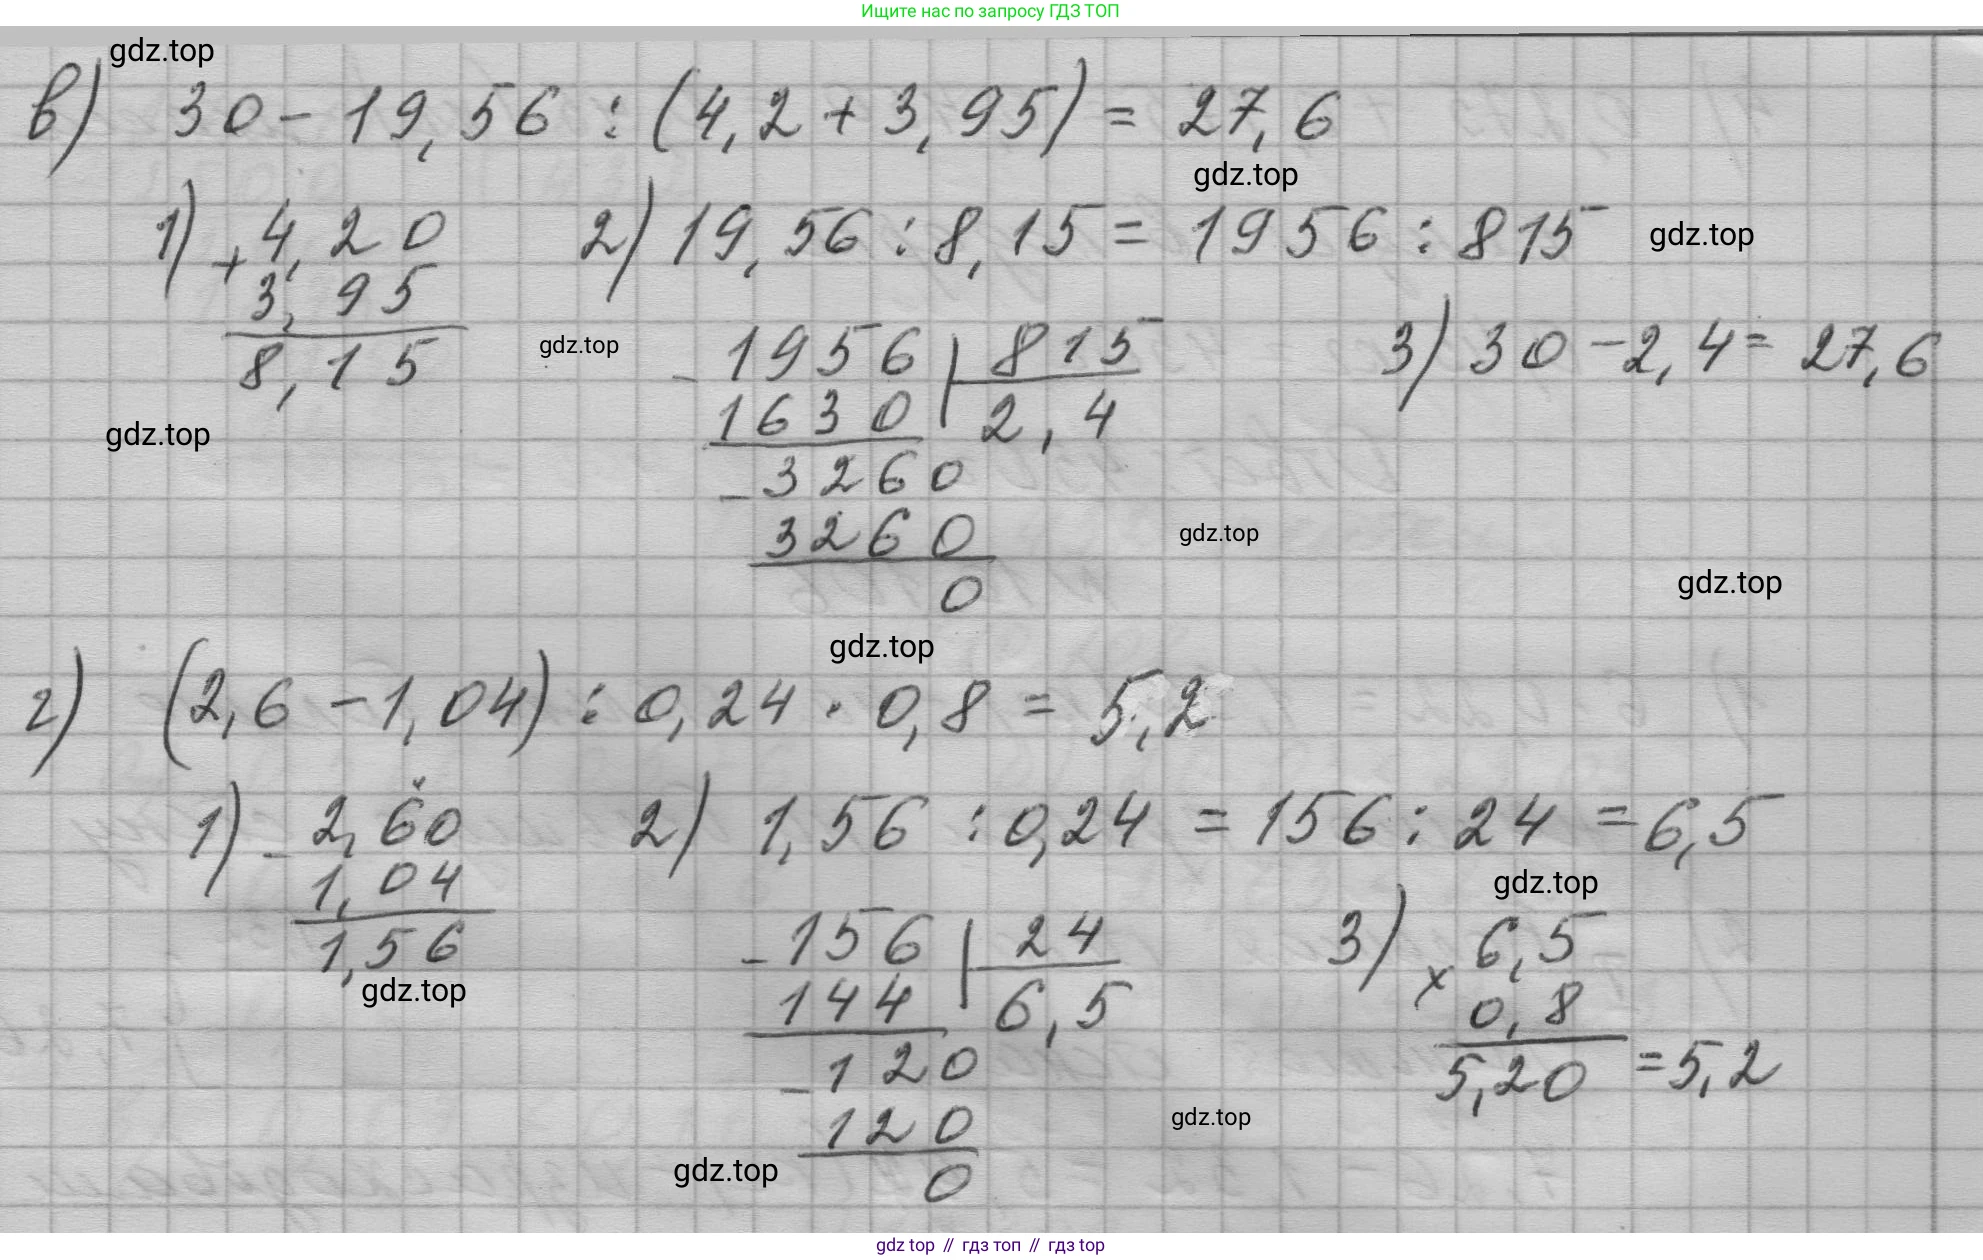 Ищите нас по запросу ГДЗ ТОП
gdz.top
в) 30 - 19,56 : (4,2 + 3,95) = 27,6
gdz.top
1) + 4,20
3,95
8,15
2) 19,56 : 8,15 = 1956 : 815
gdz.top
gdz.top
- 1956 | 815
1630 | 2,4
- 3260
3260
0
3) 30 - 2,4 = 27,6
gdz.top
gdz.top
gdz.top
gdz.top
г) (2,6 - 1,04) : 0,24 · 0,8 = 5,2
1) - 2,60
1,04
1,56
gdz.top
2) 1,56 : 0,24 = 156 : 24 = 6,5
gdz.top
- 156 | 24
144 | 6,5
- 120
120
0
3) x 6,5
0,8
5,20 = 5,2
gdz.top
gdz.top
gdz top // гдз топ // гдз top